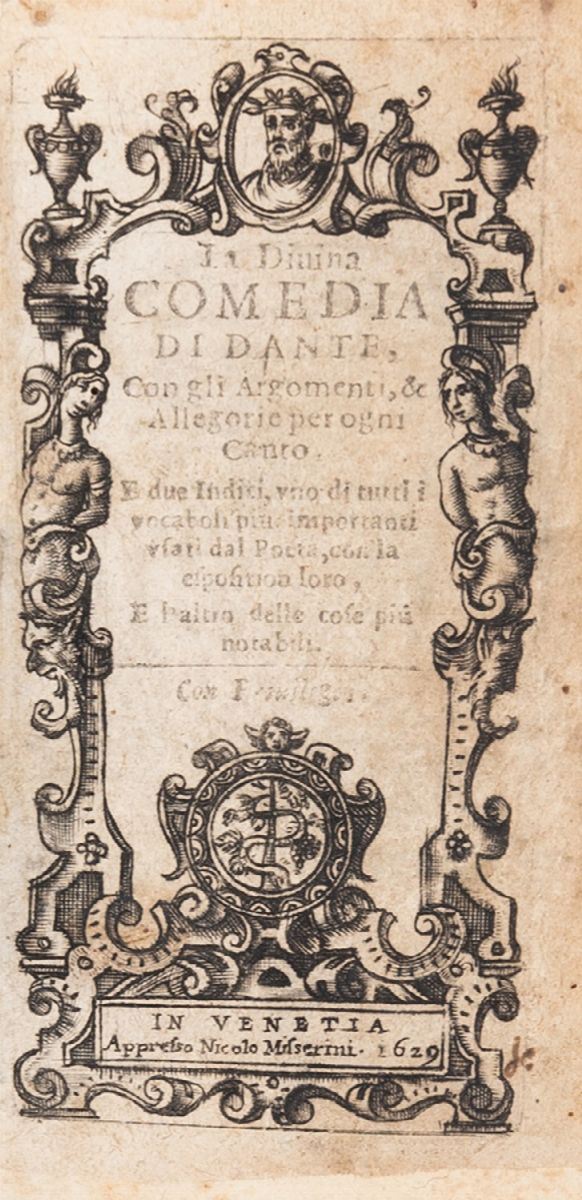 La Diuina
COMEDIA
DI DANTE,
Con gli Argomenti, &
Allegorie per ogni
Canto.
E due Indici, vno di tutti i
vocaboli più importanti
vsati dal Poeta, con la
esposition loro,
E l'altro delle cose più
notabili.
Con Priuilegio.
IN VENETIA
Appresso Nicolo Misserini. 1629